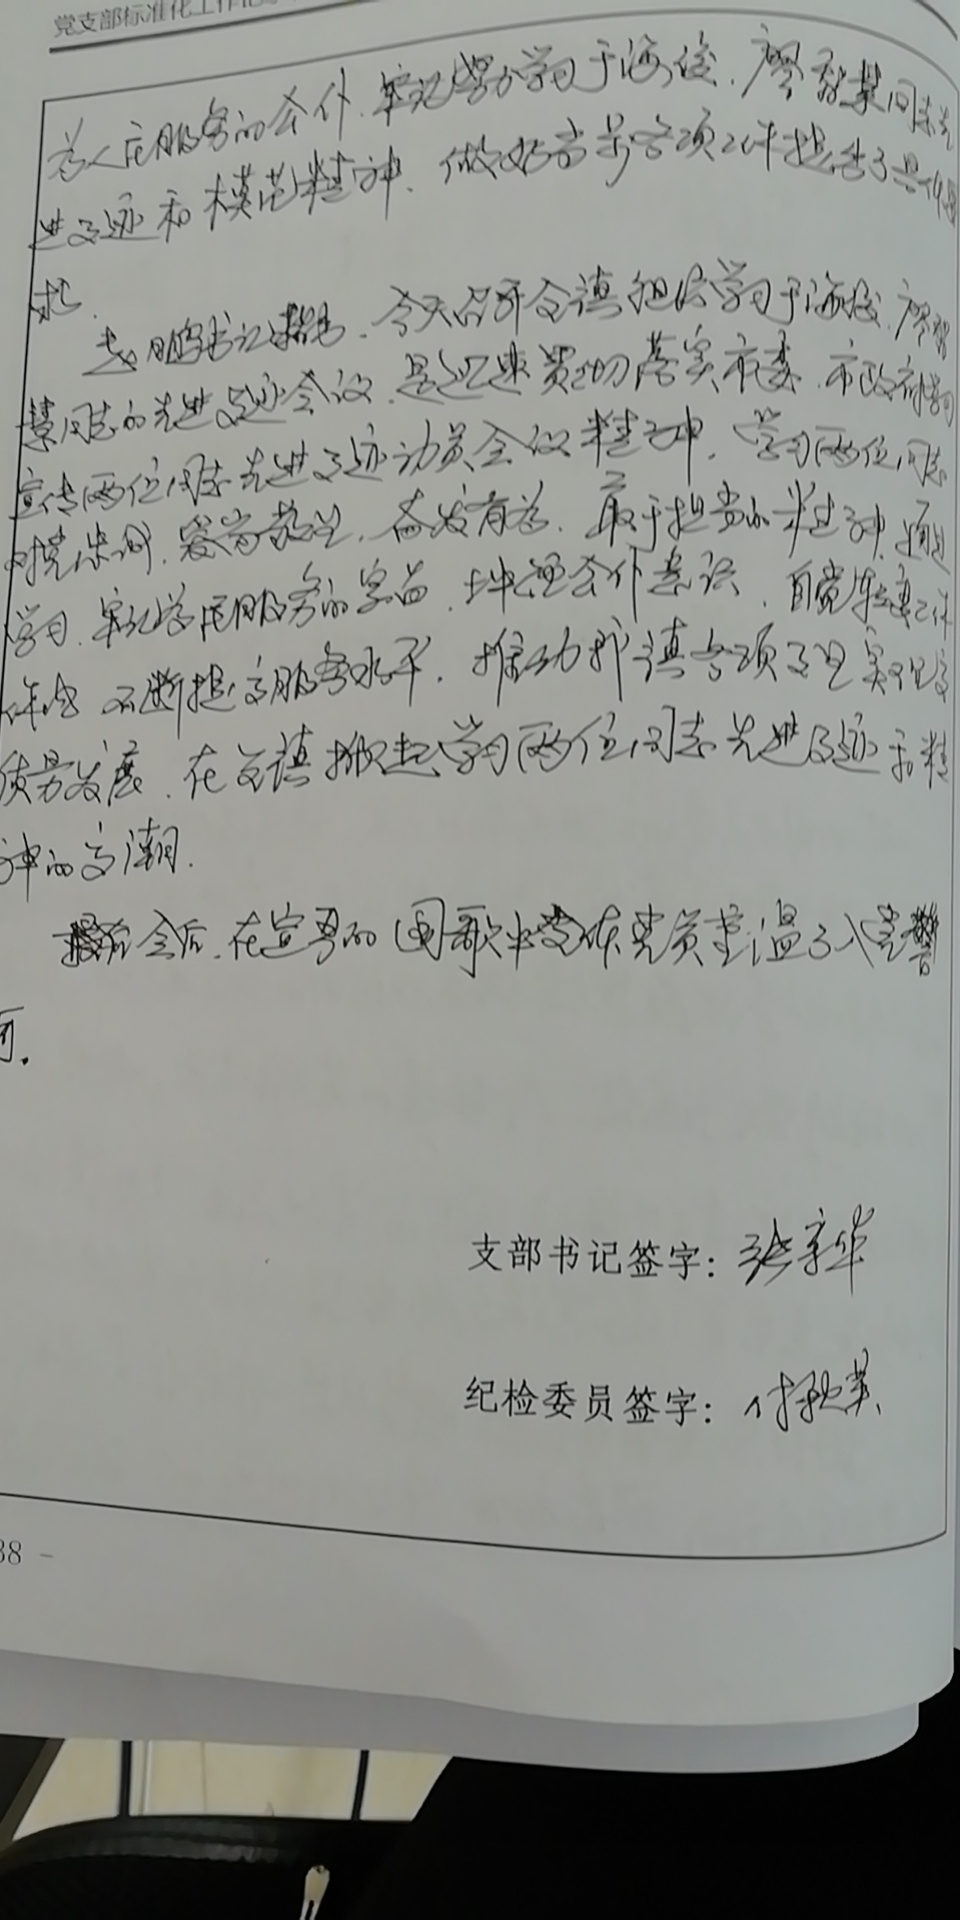 党支部标准化工作
为人民服务的公仆，牢记努力学习于海俊、廖智慧同志先
进事迹和模范精神，做好本职各项工作提出了具体要
求。
书记指出，今天召开全镇组织学习于海俊、廖智
慧同志的先进事迹会议，是迅速贯彻落实市委、市政府学习
宣传两位同志先进事迹动员会议精神，学习两位同志
对党忠诚，爱岗敬业，奋发有为，敢于担当的精神，通过
学习，牢记为民服务的宗旨，公仆意识，自觉转变工作
作风，不断提高服务水平，推动我镇各项事业实现高
质量发展，在全镇掀起学习两位同志先进事迹和精
神的高潮。
会后，在宣誓的国歌中全体党员重温了入党誓
词。
支部书记签字：张
纪检委员签字：付秋英
38 -